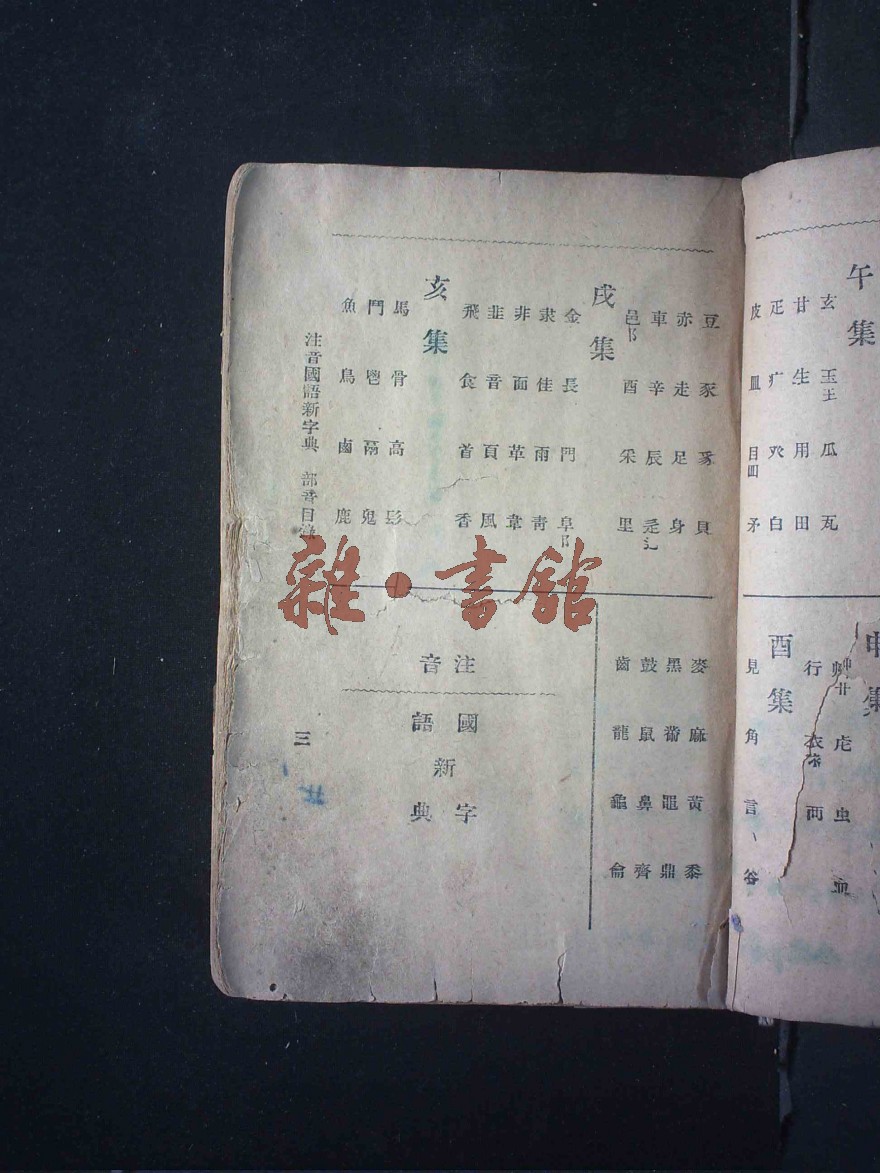 午集
玄玉王瓜瓦
甘生用田
疋疒癶白
皮皿目罒矛
申集
艸艹虍虫血
行衣衤襾
酉集
見角言谷
豆豕豸貝
赤走足身
車辛辰辵辶
邑阝酉釆里
戌集
金長門阜阝
隶隹雨靑
非面革韋
韭音頁風
飛食首香
亥集
馬骨高髟
鬥鬯鬲鬼
魚鳥鹵鹿
麥麻黃黍
黑黹黽鼎
鼓鼠鼻齊
齒龍龜龠
注音
國語
新
字典
注音國語新字典 部首目錄
三
雜·書館